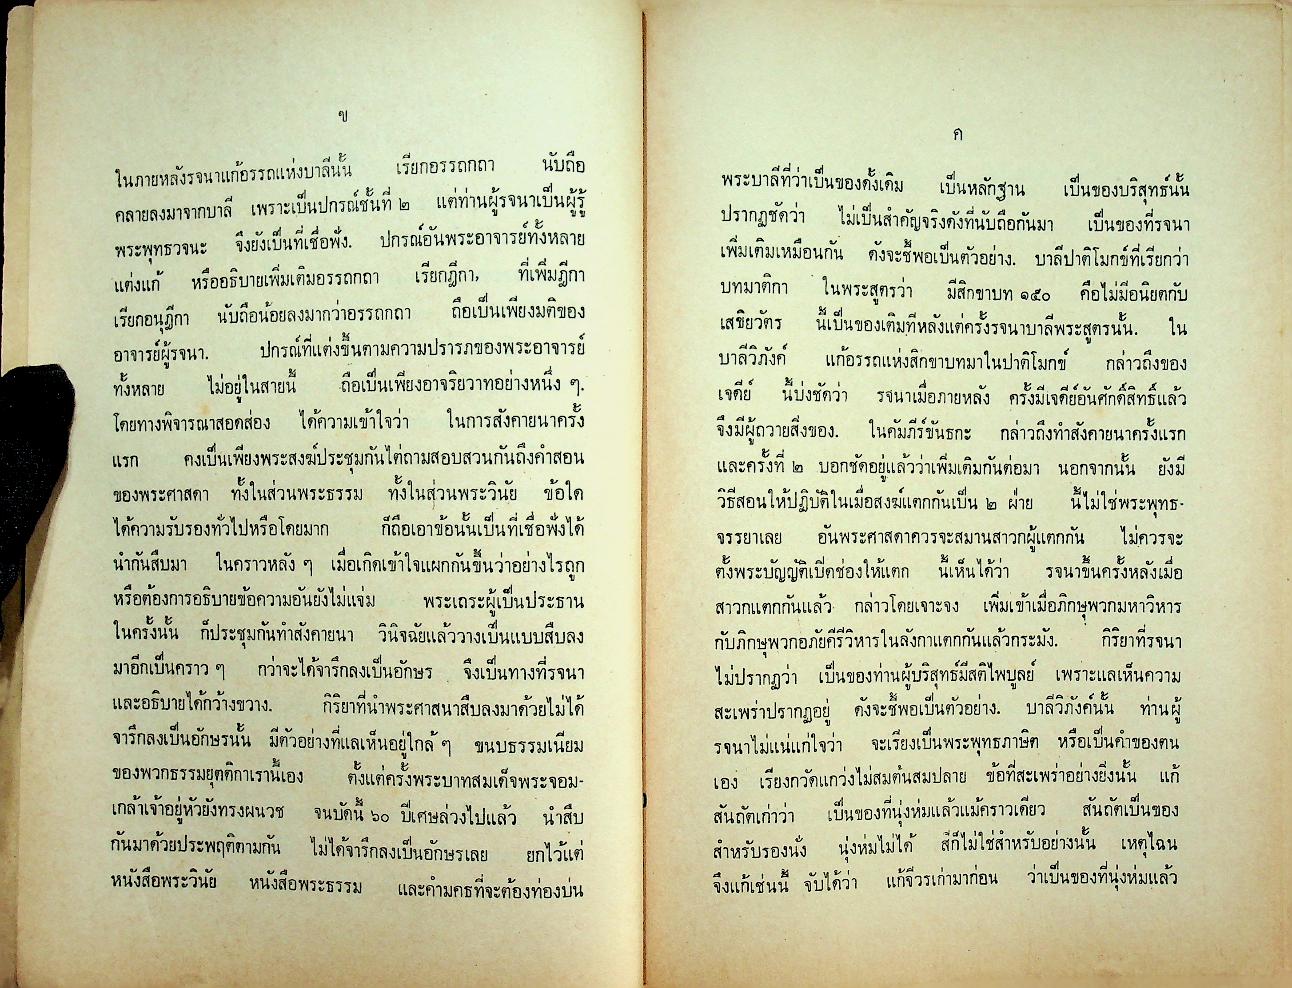 ข
ในภายหลังรจนาแก้อรรถแห่งบาลีนั้น เรียกอรรถกถา นับถือ
คลายลงมาจากบาลี เพราะเป็นปกรณ์ชั้นที่ ๒ แต่ท่านผู้รจนาเป็นผู้รู้
พระพุทธวจนะ จึงยังเป็นที่เชื่อฟัง. ปกรณ์อันพระอาจารย์ทั้งหลาย
แต่งแก้ หรืออธิบายเพิ่มเติมอรรถกถา เรียกฎีกา, ที่เพิ่มฎีกา
เรียกอนุฎีกา นับถือน้อยลงมากว่าอรรถกถา ถือเป็นเพียงมติของ
อาจารย์ผู้รจนา. ปกรณ์ที่แต่งขึ้นตามความปรารภของพระอาจารย์
ทั้งหลาย ไม่อยู่ในสายนี้ ถือเป็นเพียงอาจริยวาทอย่างหนึ่ง ๆ.
โดยทางพิจารณาสอดส่อง ได้ความเข้าใจว่า ในการสังคายนาครั้ง
แรก คงเป็นเพียงพระสงฆ์ประชุมกันไต่ถามสอบสวนกันถึงคำสอน
ของพระศาสดา ทั้งในส่วนพระธรรม ทั้งในส่วนพระวินัย ข้อใด
ได้ความรับรองทั่วไปหรือโดยมาก ก็ถือเอาข้อนั้นเป็นที่เชื่อฟังได้
นำกันสืบมา ในคราวหลัง ๆ เมื่อเกิดเข้าใจแผกกันขึ้นว่าอย่างไรถูก
หรือต้องการอธิบายข้อความอันยังไม่แจ่ม พระเถระผู้เป็นประธาน
ในครั้งนั้น ก็ประชุมกันทำสังคายนา วินิจฉัยแล้ววางเป็นแบบสืบลง
มาอีกเป็นคราว ๆ กว่าจะได้จารึกลงเป็นอักษร จึงเป็นทางที่รจนา
และอธิบายได้กว้างขวาง. กิริยาที่นำพระศาสนาสืบลงมาด้วยไม่ได้
จารึกลงเป็นอักษรนั้น มีตัวอย่างที่แลเห็นอยู่ใกล้ ๆ ขนบธรรมเนียม
ของพวกธรรมยุตติกาเรานี้เอง ตั้งแต่ครั้งพระบาทสมเด็จพระจอม-
เกล้าเจ้าอยู่หัวยังทรงผนวช จนบัดนี้ ๖๐ ปีเศษล่วงไปแล้ว นำสืบ
กันมาด้วยประพฤติตามกัน ไม่ได้จารึกลงเป็นอักษรเลย ยกไว้แต่
หนังสือพระวินัย หนังสือพระธรรม และคำมคธที่จะต้องท่องบ่น
ค
พระบาลีที่ว่าเป็นของดั้งเดิม เป็นหลักฐาน เป็นของบริสุทธิ์นั้น
ปรากฏชัดว่า ไม่เป็นสำคัญจริงดังที่นับถือกันมา เป็นของที่รจนา
เพิ่มเติมเหมือนกัน ดังจะชี้พอเป็นตัวอย่าง. บาลีปาติโมกข์ที่เรียกว่า
บทมาติกา ในพระสูตรว่า มีสิกขาบท ๑๕๐ คือไม่มีอนิยตกับ
เสขิยวัตร นี้เป็นของเติมทีหลังแต่ครั้งรจนาบาลีพระสูตรนั้น. ใน
บาลีวิภังค์ แก้อรรถแห่งสิกขาบทมาในปาติโมกข์ กล่าวถึงของ
เจดีย์ นี้บ่งชัดว่า รจนาเมื่อภายหลัง ครั้งมีเจดีย์อันศักดิ์สิทธิ์แล้ว
จึงมีผู้ถวายสิ่งของ. ในคัมภีร์ขันธกะ กล่าวถึงทำสังคายนาครั้งแรก
และครั้งที่ ๒ บอกชัดอยู่แล้วว่าเพิ่มเติมกันต่อมา นอกจากนั้น ยังมี
วิธีสอนให้ปฏิบัติในเมื่อสงฆ์แตกกันเป็น ๒ ฝ่าย นี้ไม่ใช่พระพุทธ-
จรรยาเลย อันพระศาสดาควรจะสมานสาวกผู้แตกกัน ไม่ควรจะ
ตั้งพระบัญญัติเปิดช่องให้แตก นี้เห็นได้ว่า รจนาขึ้นครั้งหลังเมื่อ
สาวกแตกกันแล้ว กล่าวโดยเจาะจง เพิ่มเข้าเมื่อภิกษุพวกมหาวิหาร
กับภิกษุพวกอภัยคีรีวิหารในลังกาแตกกันแล้วกระมัง. กิริยาที่รจนา
ไม่ปรากฏว่า เป็นของท่านผู้บริสุทธ์มีสติไพบูลย์ เพราะแลเห็นความ
สะเพร่าปรากฏอยู่ ดังจะชี้พอเป็นตัวอย่าง. บาลีวิภังค์นั้น ท่านผู้
รจนาไม่แน่แก่ใจว่า จะเรียงเป็นพระพุทธภาษิต หรือเป็นคำของตน
เอง เรียงกวัดแกว่งไม่สมต้นสมปลาย ข้อที่สะเพร่าอย่างยิ่งนั้น แก้
สันถัตเก่าว่า เป็นของที่นุ่งห่มแล้วแม้คราวเดียว สันถัตเป็นของ
สำหรับรองนั่ง นุ่งห่มไม่ได้ สีก็ไม่ใช่สำหรับอย่างนั้น เหตุไฉน
จึงแก้เช่นนี้ จับได้ว่า แก้จีวรเก่ามาก่อน ว่าเป็นของที่นุ่งห่มแล้ว